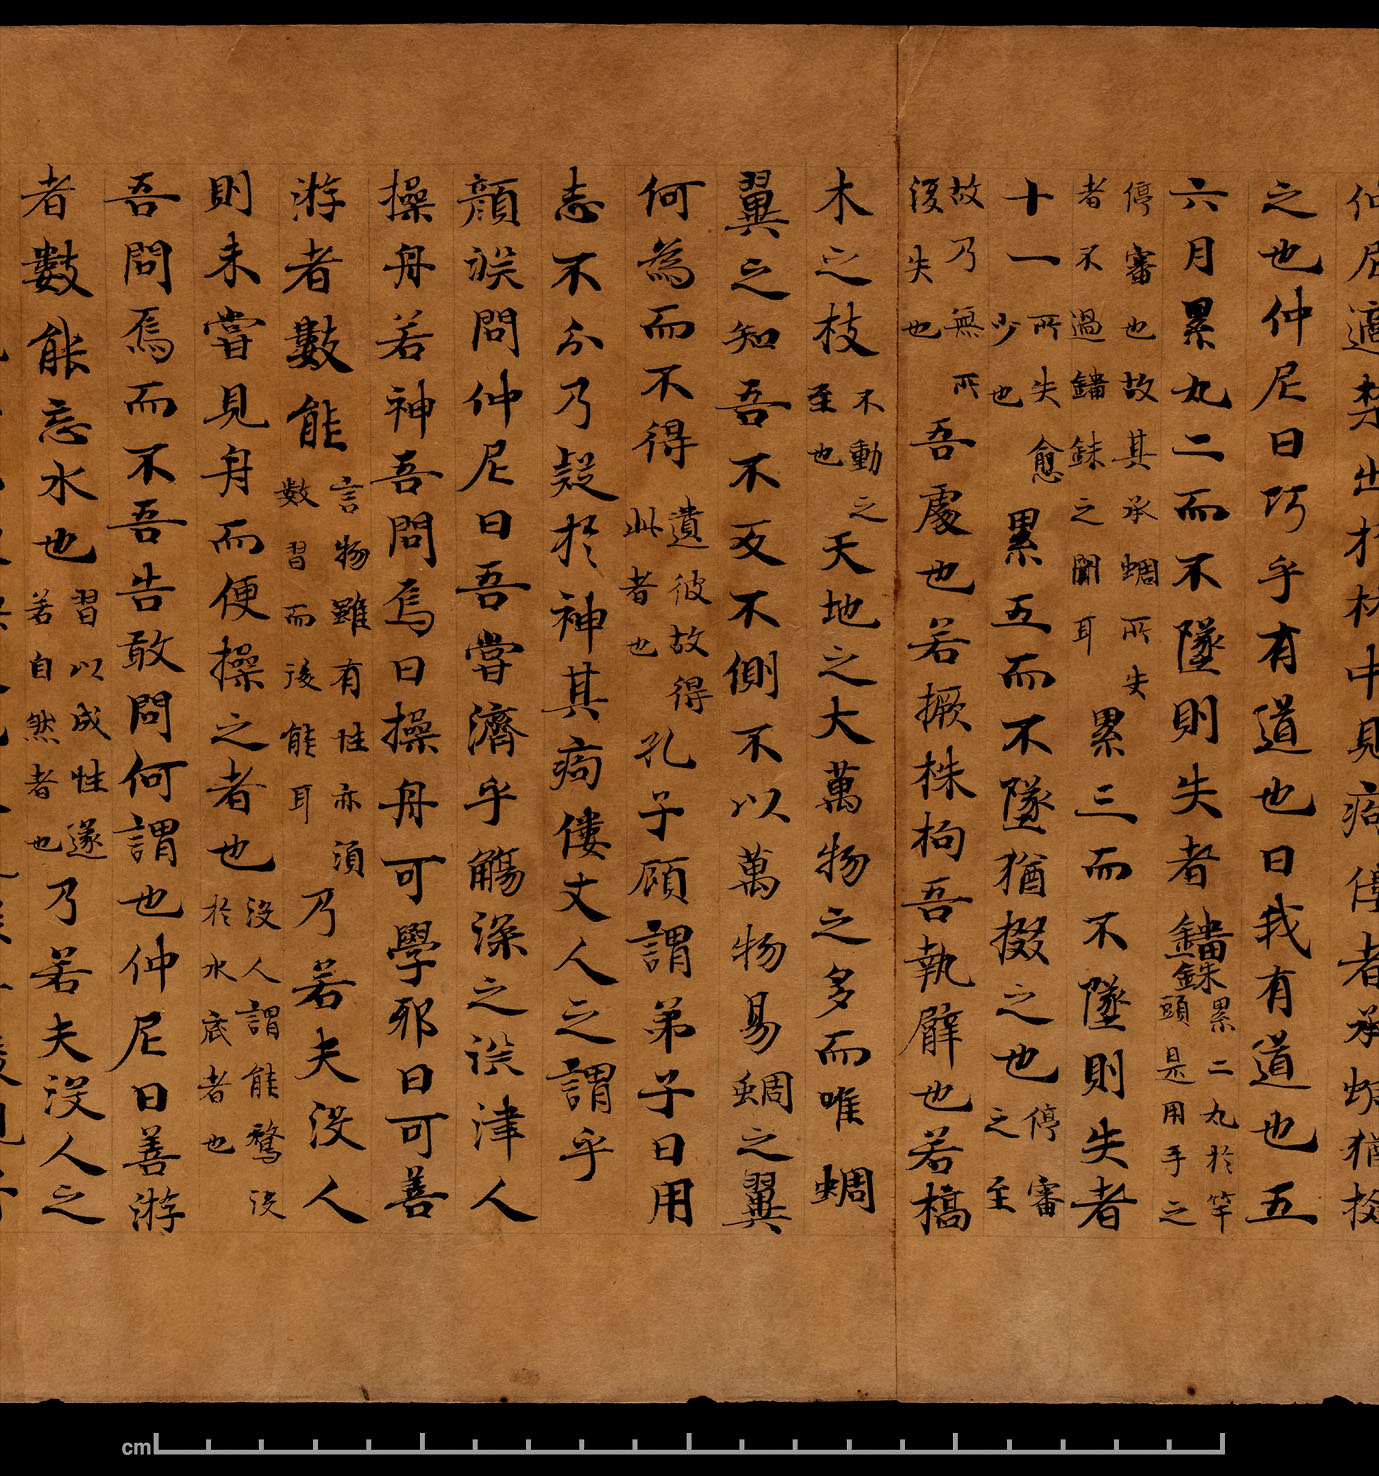 仲尼適楚出於林中見痀僂者承蜩猶掇
之也仲尼曰巧乎有道也曰我有道也五
六月累丸二而不墜則失者鍿銖累二丸於竿頭是用手之
停審也故其承蜩所失者不過鍿銖之間耳累三而不墜則失者
十一所失愈少也累五而不墜猶掇之也停審之至
故乃無所復失也吾處也若橛株拘吾執臂也若槁
木之枝不動之至也天地之大萬物之多而唯蜩
翼之知吾不反不側不以萬物易蜩之翼
何為而不得遺彼故得此者也孔子顧謂弟子曰用
志不分乃疑於神其痀僂丈人之謂乎
顏淵問仲尼曰吾嘗濟乎觴深之淵津人
操舟若神吾問焉曰操舟可學邪曰可善
游者數能言物雖有性亦須數習而後能耳乃若夫没人
則未嘗見舟而便操之者也没人謂能鶩没於水底者也
吾問焉而不吾告敢問何謂也仲尼曰善游
者數能忘水也習以成性遂若自然者也乃若夫没人之